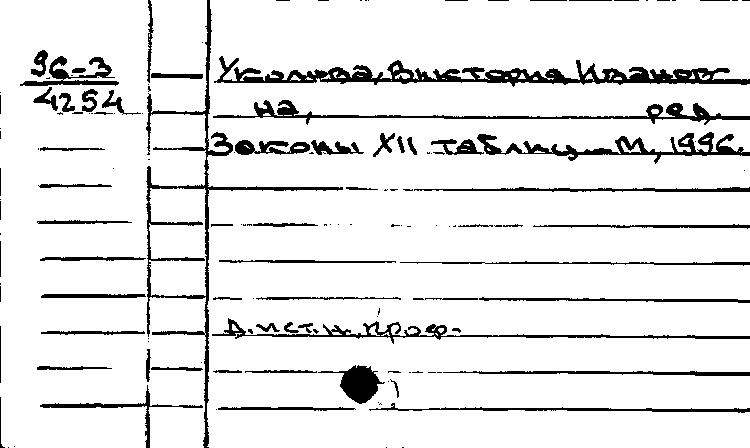 96-3
4254
Уколова, Виктория Иванов-
на, ред.
Законы XII таблиц. - М., 1996.
д.ист.н. проф.